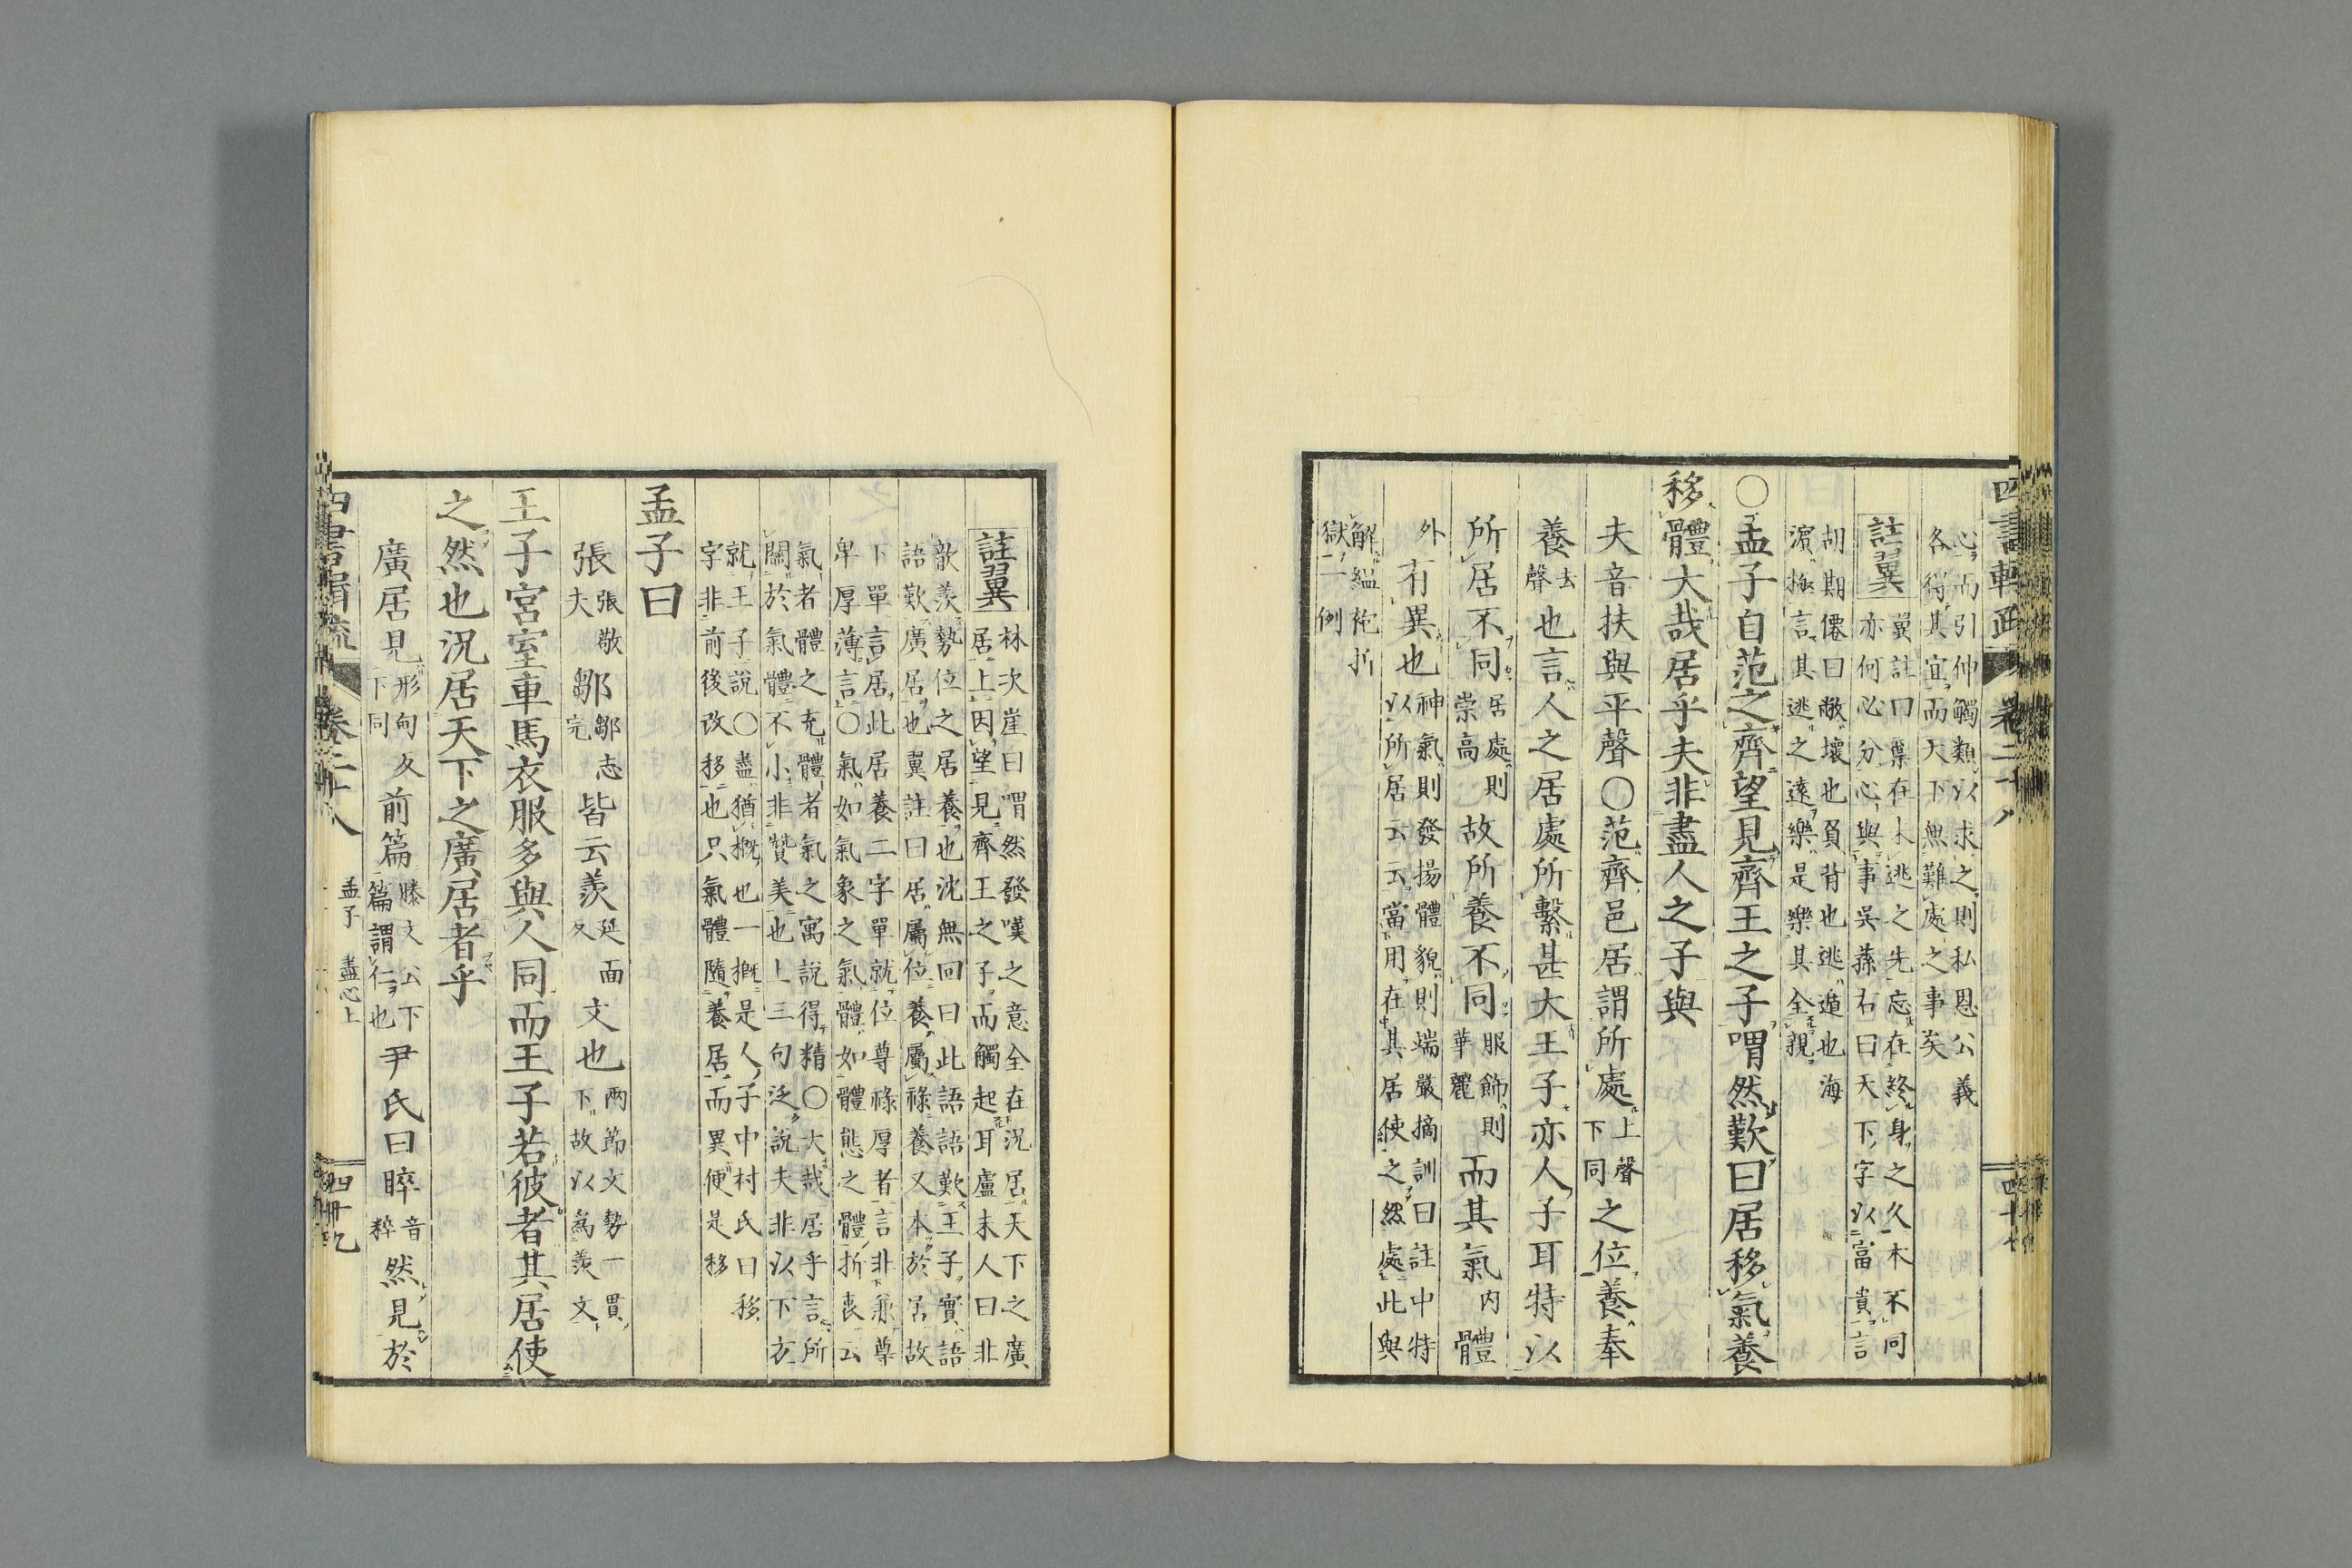 心而引仲觸類以求之則私恩公義
各得其宜而天下無難處之事矣
註翼
翼註曰棄在未逃之先忘在終身之久木不同
亦何必分心與事吳蓀右曰天下字以富貴言
胡期僊曰敝壞也負背也逃遁也海
濱極言其逃之遠樂是樂其全親
〇孟子自范之齊望見齊王之子喟然歎曰居移氣養
移體大哉居乎夫非盡人之子與
夫音扶與平聲〇范齊邑居謂所處上聲下同之位養奉
養去聲也言人之居處所繫甚大王子亦人子耳特以
所居不同居處則崇高故所養不同服飾則華麗而其氣內體
外有異也神氣則發揚體貌則端嚴摘訓曰註中特
以所居云云當用在其居使之然處此與
解縕袍折
獄一例
註翼
林次崖曰喟然發嘆之意全在況居天下之廣
居上因望見齊王之子而觸起耳盧未人曰非
歆羨勢位之居養也沈無回曰此語語歎王子實語
語歎廣居也翼註曰居屬位養屬祿養又本於居故
下單言居此居養二字單就位尊祿厚者言非兼尊
卑厚薄言〇氣如氣象之氣體如體態之體折衷云
氣者體之充體者氣之寓說得精〇大哉居乎言所
關於氣體不小非贊美也上三句泛說夫非以下方
就王子說〇盡猶概也一概是人子中村氏曰移
字非前後改移也只氣體隨養居而異便是移
孟子曰
張張敬夫鄒鄒志完皆云羨延面反文也兩節文勢一貫
下故以為羨文
王子宮室車馬衣服多與人同而王子若彼者其居使
之然也況居天下之廣居者乎
廣居見形甸反下同前篇滕文公下篇謂仁也尹氏曰睟音粹然見於
卷二十八
孟子 盡心上
四十九